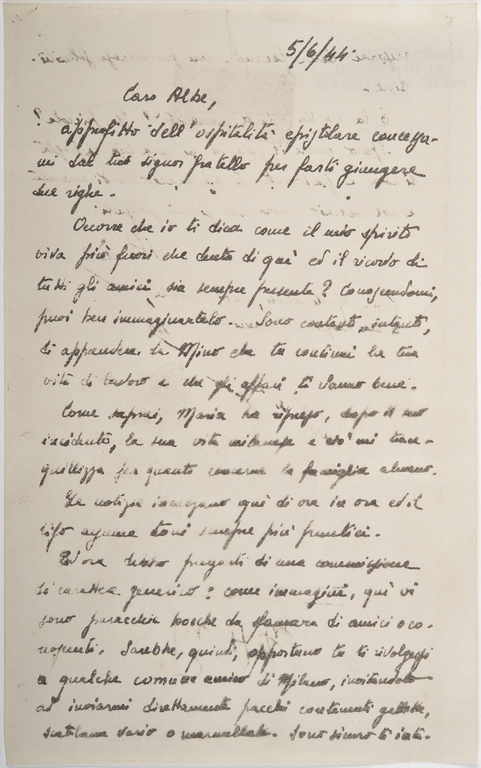 5/6/44
Caro Albe,
approfitto dell'ospitalità epistolare concessa-
mi dal tuo signor fratello per farti giungere
due righe.
Occorre che io ti dica come il mio spirito
viva più fuori che dentro di qui ed il ricordo di
tutti gli amici sia sempre presente? Conoscendomi,
puoi ben immaginartelo. Sono contento, intanto,
di apprendere da Mino che tu continui la tua
vita di lavoro e che gli affari ti vanno bene.
Come saprai, Maria ha ripreso, dopo il suo
incidente, la sua vita milanese e ciò mi tran-
quillizza per quanto concerne la famiglia almeno.
Le notizie incalzano qui di ora in ora ed il
tifo assume toni sempre più frenetici.
Ed ora debbo pregarti di una commissione
di carattere generico: come immagini, qui vi
sono parecchie bocche da sfamare di amici o co-
noscenti. Sarebbe, quindi, opportuno tu ti rivolgessi
a qualche comune amico di Milano, invitandolo
ad inviarmi direttamente pacchi contenenti gallette,
scatolame vario o marmellate. Sono sicuro ti